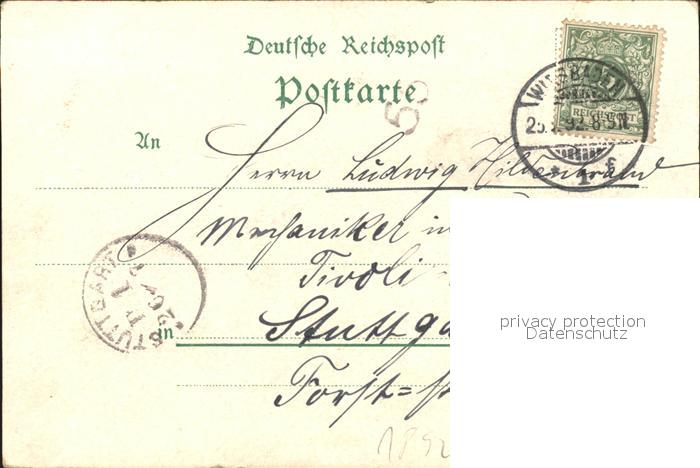 Deutsche Reichspost
Postkarte
An
Herrn Ludwig Hildenbrand
Mechaniker in
Tivoli-
in Stuttga
Forst-st
WIESBADEN
8-9N
1 f
REICHSPOST
STUTTGART
1892
privacy protection
Datenschutz